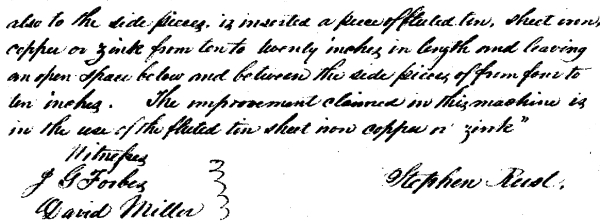 also to the side pieces, is inserted a piece of fluted ten, sheet iron,
copper or zink from ten to twenty inches in length and leaving
an open space below and between the side pieces of from four to
ten inches. The improvement claimed in this machine is
in the use of the fluted ten sheet iron copper or zink"
Witnesses
J G Forbes
Stephen Rust.
David Miller